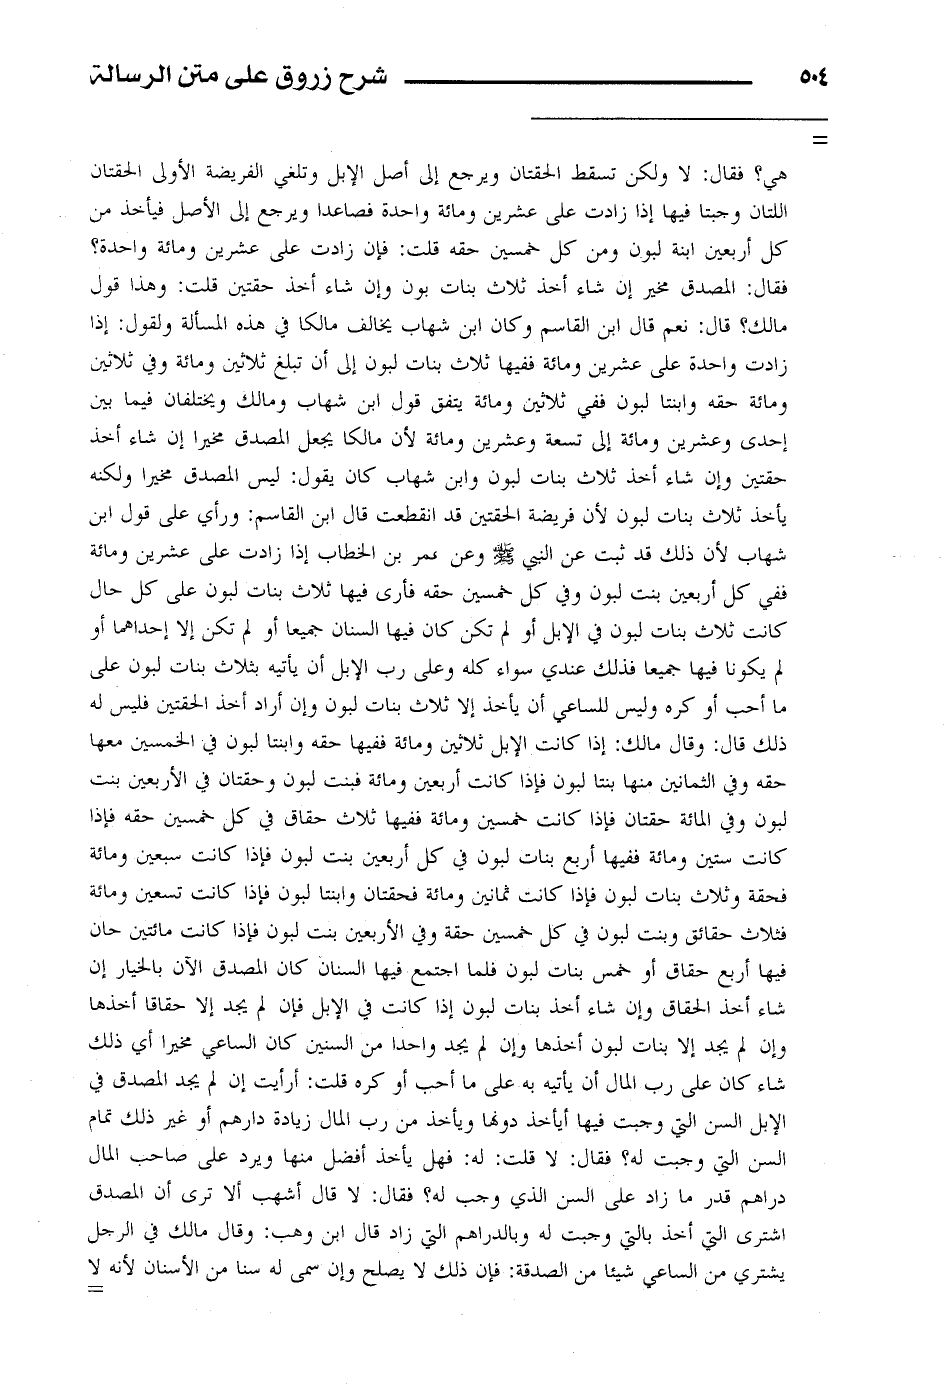 ٥٠٤ شرح زروق على متن الرسالة
=
هي؟ فقال: لا ولكن تسقط الحقتان ويرجع إلى أصل الإبل وتلغي الفريضة الأولى الحقتان
اللتان وجبتا فيها إذا زادت على عشرين ومائة واحدة فصاعدا ويرجع إلى الأصل فيأخذ من
كل أربعين ابنة لبون ومن كل خمسين حقه قلت: فإن زادت على عشرين ومائة واحدة؟
فقال: المصدق مخير إن شاء أخذ ثلاث بنات بون وإن شاء أخذ حقتين قلت: وهذا قول
مالك؟ قال: نعم قال ابن القاسم وكان ابن شهاب يخالف مالكا في هذه المسألة ولقول: إذا
زادت واحدة على عشرين ومائة ففيها ثلاث بنات لبون إلى أن تبلغ ثلاثين ومائة وفي ثلاثين
ومائة حقه وابنتا لبون ففي ثلاثين ومائة يتفق قول ابن شهاب ومالك ويختلفان فيما بين
إحدى وعشرين ومائة إلى تسعة وعشرين ومائة لأن مالكا يجعل المصدق مخيرا إن شاء أخذ
حقتين وإن شاء أخذ ثلاث بنات لبون وابن شهاب كان يقول: ليس المصدق مخيرا ولكنه
يأخذ ثلاث بنات لبون لأن فريضة الحقتين قد انقطعت قال ابن القاسم: ورأي على قول ابن
شهاب لأن ذلك قد ثبت عن النبي ﷺ وعن عمر بن الخطاب إذا زادت على عشرين ومائة
ففي كل أربعين بنت لبون وفي كل خمسين حقه فأرى فيها ثلاث بنات لبون على كل حال
كانت ثلاث بنات لبون في الإبل أو لم تكن كان فيها السنان جميعا أو لم تكن إلا إحداهما أو
لم يكونا فيها جميعا فذلك عندي سواء كله وعلى رب الإبل أن يأتيه بثلاث بنات لبون على
ما أحب أو كره وليس للساعي أن يأخذ إلا ثلاث بنات لبون وإن أراد أخذ الحقتين فليس له
ذلك قال: وقال مالك: إذا كانت الإبل ثلاثين ومائة ففيها حقه وابنتا لبون في الخمسين معها
حقه وفي الثمانين منها بنتا لبون فإذا كانت أربعين ومائة فبنت لبون وحقتان في الأربعين بنت
لبون وفي المائة حقتان فإذا كانت خمسين ومائة ففيها ثلاث حقاق في كل خمسين حقه فإذا
كانت ستين ومائة ففيها أربع بنات لبون في كل أربعين بنت لبون فإذا كانت سبعين ومائة
فحقة وثلاث بنات لبون فإذا كانت ثمانين ومائة فحقتان وابنتا لبون فإذا كانت تسعين ومائة
فثلاث حقائق وبنت لبون في كل خمسين حقة وفي الأربعين بنت لبون فإذا كانت مائتين حان
فيها أربع حقاق أو خمس بنات لبون فلما اجتمع فيها السنان كان المصدق الآن بالخيار إن
شاء أخذ الحقاق وإن شاء أخذ بنات لبون إذا كانت في الإبل فإن لم يجد إلا حقاقا أخذها
وإن لم يجد إلا بنات لبون أخذها وإن لم يجد واحدا من السنين كان الساعي مخيرا أي ذلك
شاء كان على رب المال أن يأتيه به على ما أحب أو كره قلت: أرأيت إن لم يجد المصدق في
الإبل السن التي وجبت فيها أيأخذ دونها ويأخذ من رب المال زيادة دارهم أو غير ذلك تمام
السن التي وجبت له؟ فقال: لا قلت: له: فهل يأخذ أفضل منها ويرد على صاحب المال
دراهم قدر ما زاد على السن الذي وجب له؟ فقال: لا قال أشهب ألا ترى أن المصدق
اشترى التي أخذ بالتي وجبت له وبالدراهم التي زاد قال ابن وهب: وقال مالك في الرجل
يشتري من الساعي شيئا من الصدقة: فإن ذلك لا يصلح وإن سمى له سنا من الأسنان لأنه لا
=